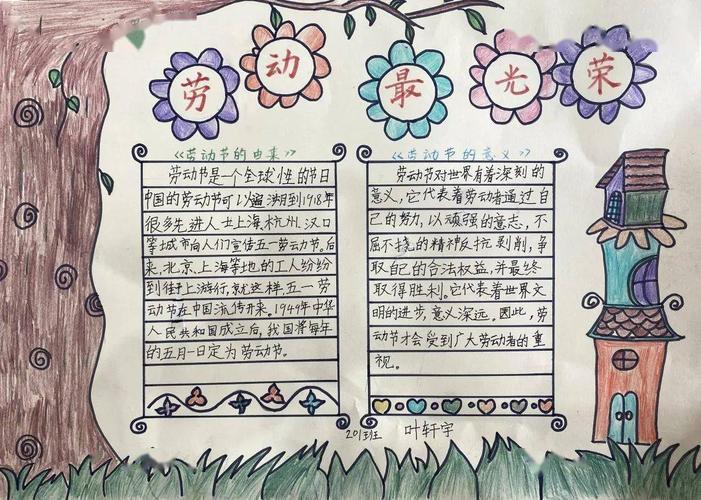 劳动最光荣
《劳动节的由来》
劳动节是一个全球性的节日
中国的劳动节可以遍溯到1918年
很多先进人士上海、杭州、汉口
等城市向人们宣传五一劳动节。后
来,北京、上海等地的工人纷纷
到街上游行,就这样,五一劳
动节在中国流传开来。1949年中华
人民共和国成立后,我国将每年
的五月一日定为劳动节。
《劳动节的意义》
劳动节对世界有着深刻的
意义,它代表着劳动者通过自
己的努力,以顽强的意志,不
屈不挠的精神反抗剥削,争
取自己的合法权益,并最终
取得胜利。它代表着世界文
明的进步,意义深远。因此,劳
动节才会受到广大劳动者的重
视。
201班 叶轩宇